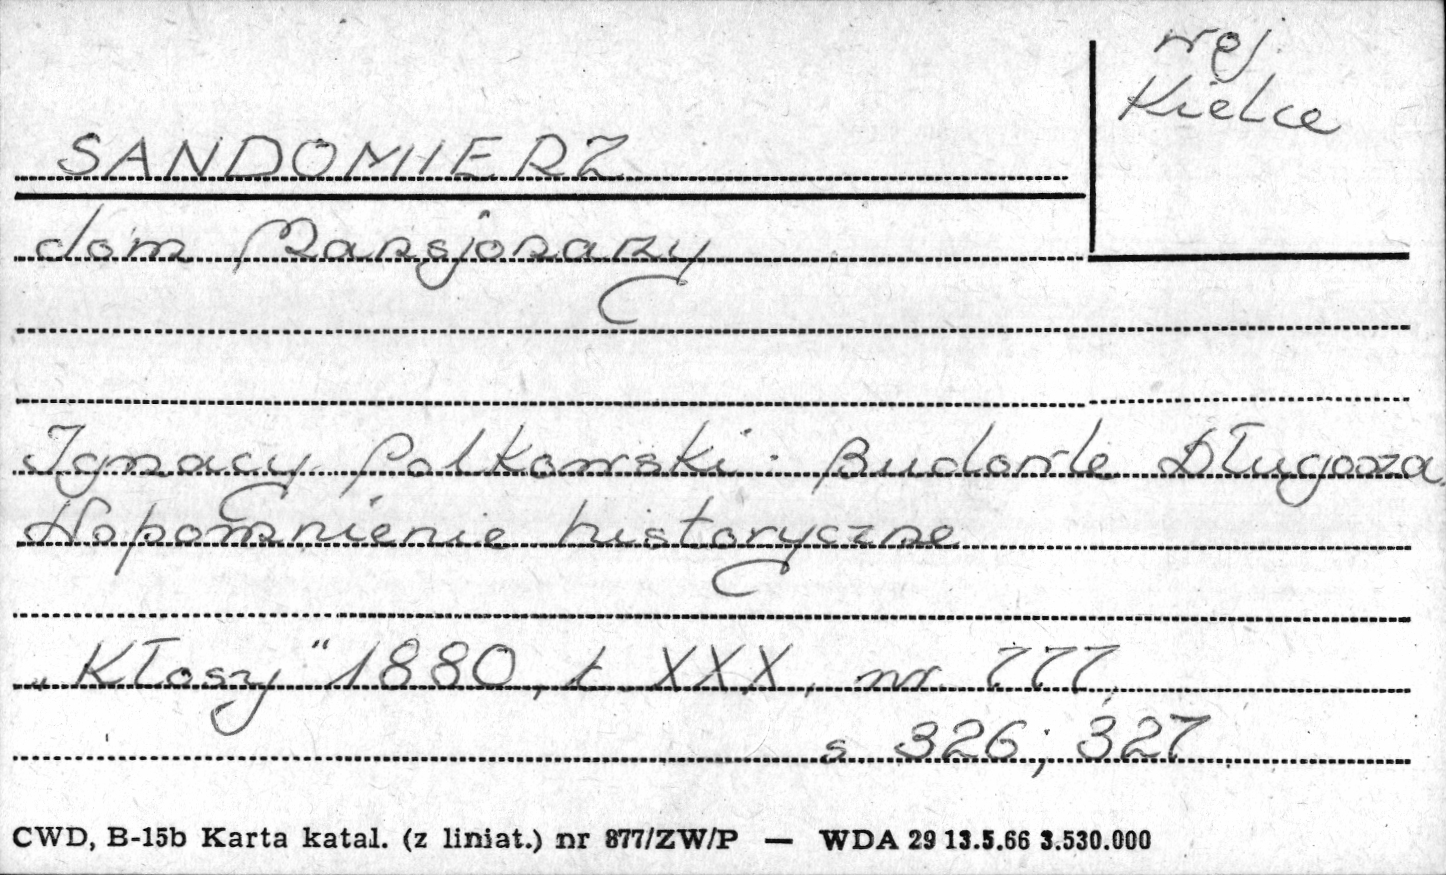 woj.
Kielce
SANDOMIERZ
dom Mansjonarzy
Ignacy Polkowski: Budowle Długosza.
Wspomnienie historyczne
„Kłosy" 1880, t. XXX, nr. 777,
s. 326; 327
CWD, B-15b Karta katal. (z liniat.) nr 877/ZW/P — WDA 29 13.5.66 3.530.000